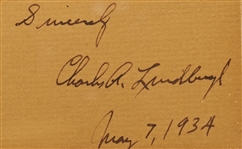 Sincerely
Charles A. Lindbergh
May 7, 1934